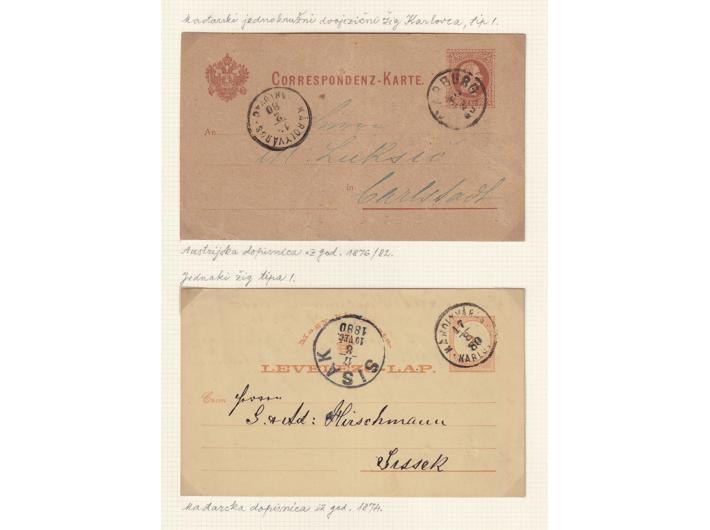 Mađarski jednokružni dvojezični žig Karlovca, tip 1.
CORRESPONDENZ-KARTE.
MARBURG
KÁROLYVÁROS
80
An
Herrn
M. Luksić
in
Carlstadt
Austrijska dopisnica iz god. 1876/82.
Jednaki žig tipa 1.
SISAK
17
8
1880
KÁROLYVÁR
17
8
80
KARLO
LEVELEZŐ-LAP.
Czim
Herren
G. & Ad: Hirschmann
Sissek
Mađarska dopisnica iz god. 1874.